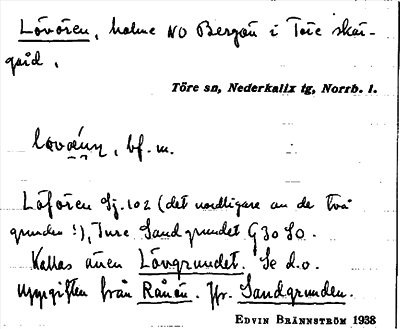 Lövören, holme NO Bergön i Töre skär-
gård.
Töre sn, Nederkalix tg, Norrb. l.
bf. m.
Löfören Sj. 102 (det nordligare av de två
grunden!), Ture Sandgrundet G 30 SO.
Kallas även Lövgrundet. Se d. o.
Uppgiften från Rånön. Jfr. Sandgrunden.
EDVIN BRÄNNSTRÖM 1938